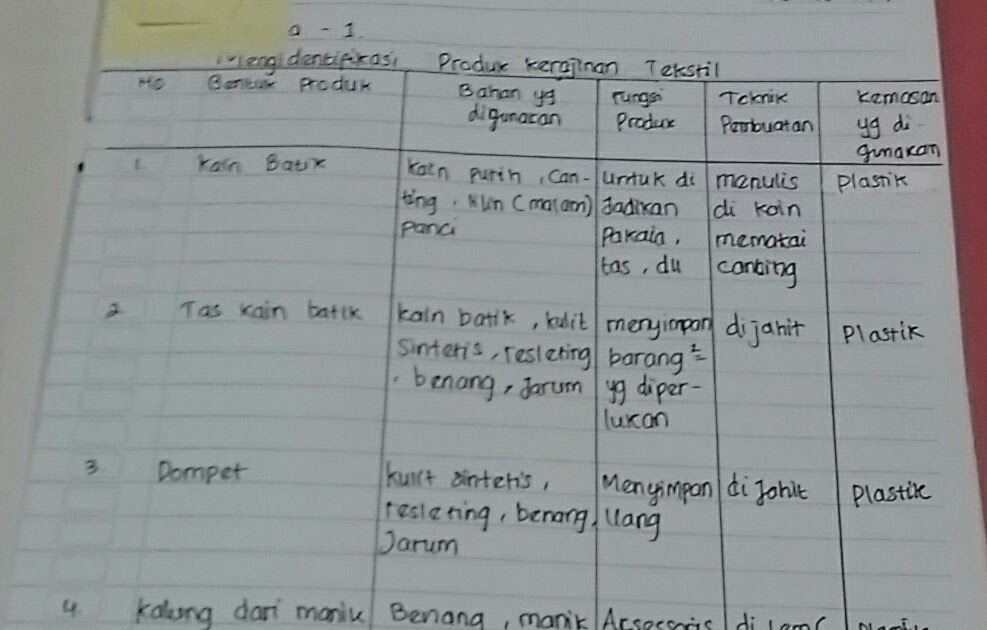 a - 1.
Mengidentifikasi Produk kerajinan Tekstil
No Bentuk Produk Bahan yg digunakan Fungsi Produk Teknik Pembuatan Kemasan yg di - gunakan
1. Kain Batik Kain putih, Can- ting, lilin (malam) panci untuk di Jadikan Pakaia, tas, du menulis di kain memakai canting Plastik
2 Tas kain batik kain batik, kulit sintetis, resleting , benang, Jarum menyimpan barang 2= yg diper- lukan dijahit Plastik
3. Dompet kulit sintetis, resleting, benang, Jarum Menyimpan Uang di Jahit Plastik
4. Kalung dari manik Benang, manik